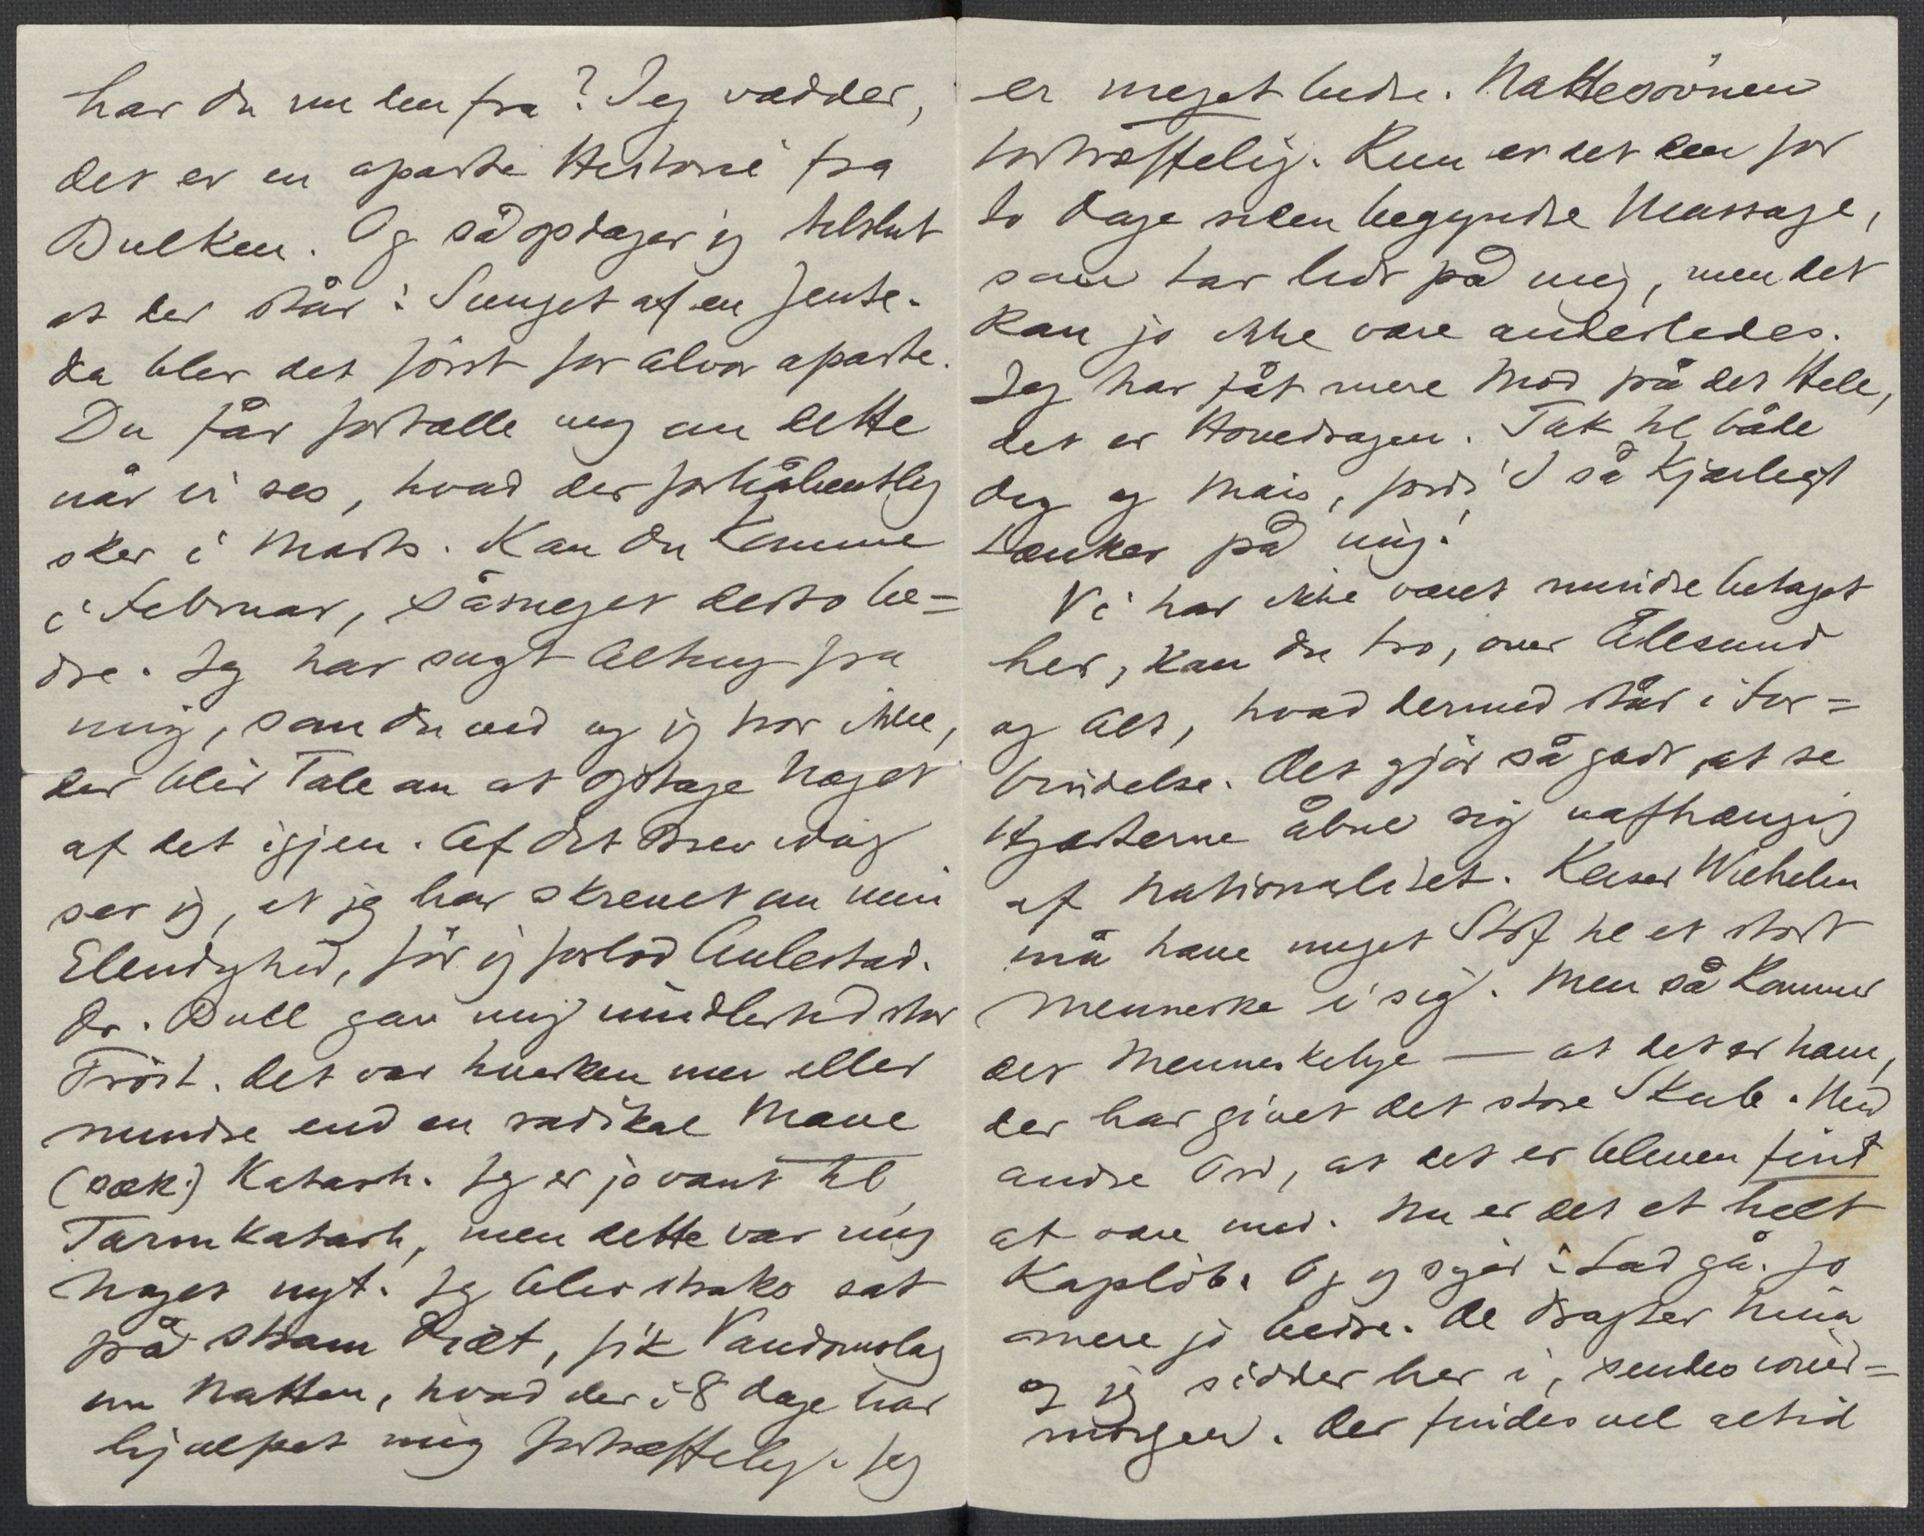 har du nu den fra? Jeg vædder,
det er en aparte Historie fra
Bulken. Og så opdager jeg tilslut
at der står: Sunget af en Jente.
da blev det først for alvor aparte.
Du får fortælle mig om dette
når vi ses, hvad der forhåbentlig
sker i Marts. Kan du komme
i Februar, såmeget desto be=
dre. Jeg har sagt Alting fra
mig, som du ved og jeg tror ikke,
der blir Tale om at optage Noget
af det igjen. Af dit Brev idag
ser jeg, at jeg har skrevet om min
Elendighed, før jeg forlod Aulestad.
Dr. Bull gav mig imidlertid stor
Trøst. Det var hverken mer eller
mindre end en radikal Mave
(sæk) Katarrh. Jeg er jo vant til
Tarmkatarrh, men dette var mig
Noget nyt. Jeg blev straks sat
på stram Diæt, fik Vandomslag
om Natten, hvad der i 8 Dage har
hjulpet mig fortræffelig. Jeg
er meget bedre. Nattesøvnen
fortræffelig. Kun er det den for
to Dage siden begyndte Massage,
som tar lidt på mig, men det
kan jo ikke være anderledes.
Jeg har fåt mere Mod på det Hele,
det er Hovedsagen. Tak til både
dig og Mais, fordi I så kjærligt
tænker på mig!
Vi har ikke været mindre betaget
her, kan du tro, over Ålesund
og Alt, hvad dermed står i For=
bindelse. Det gjør så godt, at se
Hjerterne åbne sig uafhængig
af Nationalitet. Keiser Wilhelm
må have meget Stof til et stort
Menneske i sig. Men så kommer
det Menneskelige — at det er ham,
der har givet det store Skub. Med
andre Ord, at det er bleven fint
at være med. Nu er det et helt
Kapløb. Og jeg siger: Lad gå. Jo
mere jo bedre. De Dragter Nina
og jeg sidder her i, sendes iover=
morgen. Der findes vel altid